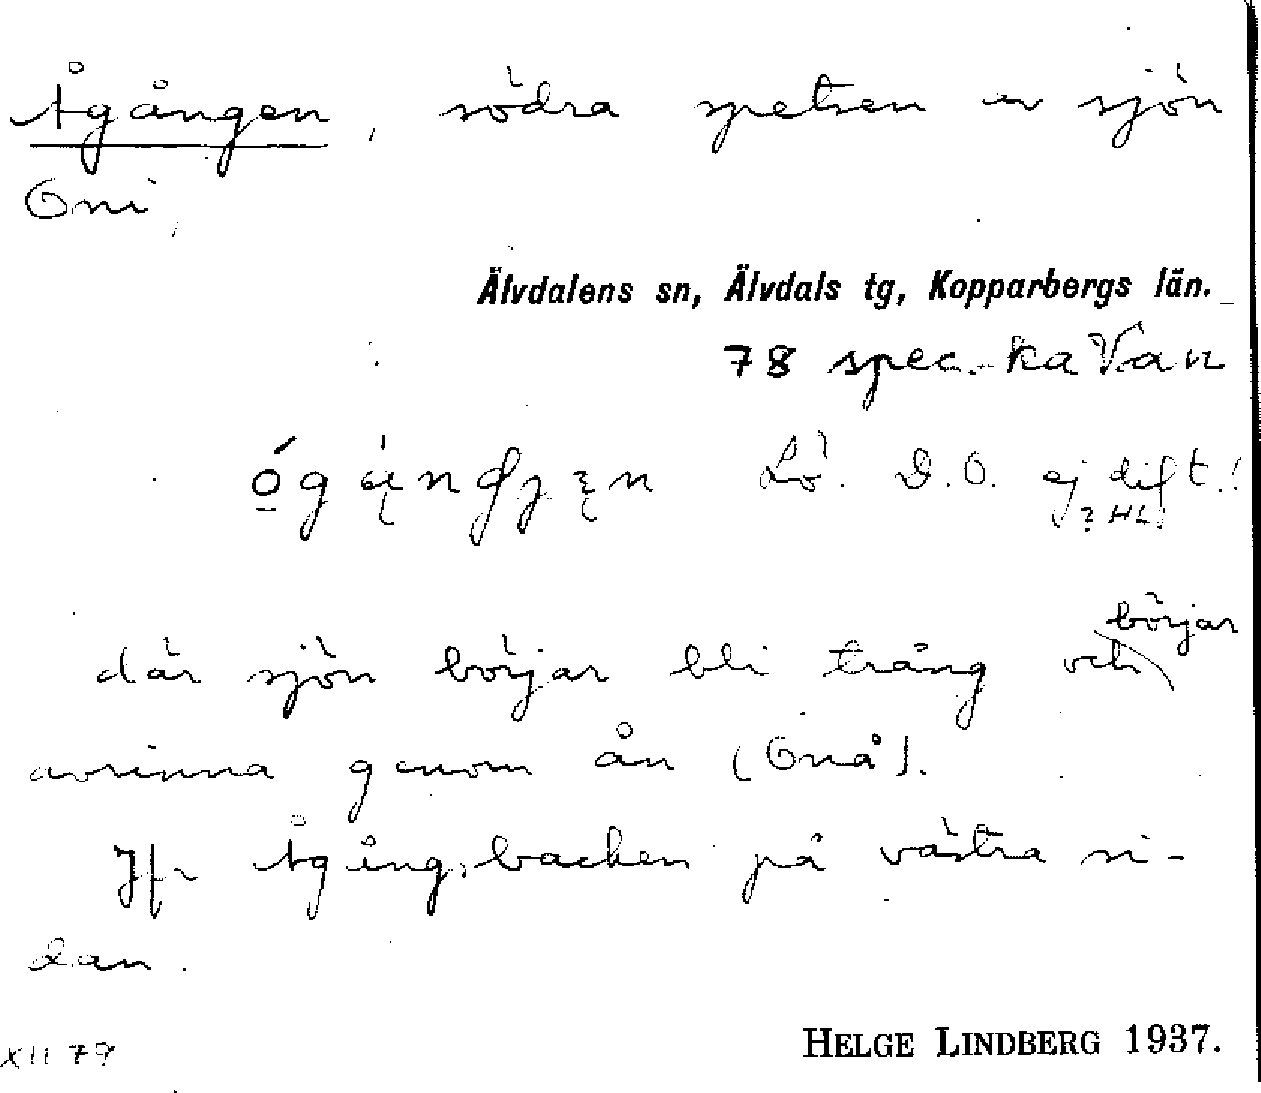 Ågången, södra spetsen av sjön
Oni,
Älvdalens sn, Älvdals tg, Kopparbergs län.
78 spec.-ka Van
Lö. D.O. ej dift.!
? HL
börjar
där sjön börjar bli trång och
avrinna genom ån (Onå).
Jfr Ågångsbacken på västra si-
dan.
HELGE LINDBERG 1937.
XII 79